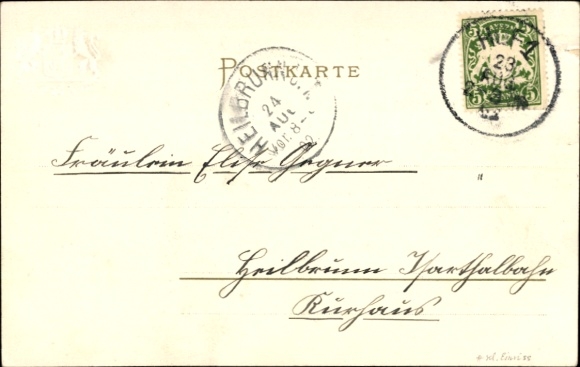 POSTKARTE
HEILBRUNN
24
AUG
Vor. 8-
02
23
5 5
Fräulein Elise Gegner
Heilbrunn Isarthalbahn
Kurhaus